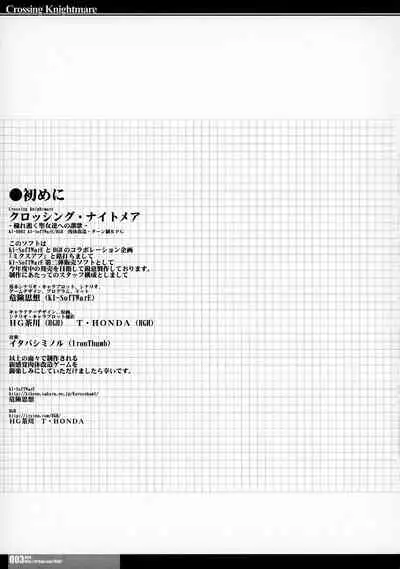 Crossing Knightmare
●初めに
Crossing Knightmare
クロッシング・ナイトメア
- 穢れ逝く聖女達への讃歌 -
このソフトは
KI-SofTWarEとHGHのコラボレーション企画
『ミクスアブ』と銘打ちまして
KI-SofTWarE 第二弾販売ソフトとして
今年度中の発売を目指して鋭意製作しております。
制作にあたってのスタッフ構成としまして
基本シナリオ・キャラプロット、シナリオ、
ゲームデザイン、プログラム、ドット
危険思想 (KI-SofTWarE)
キャラクターデザイン、原画、
シナリオ・キャラプロット補正
HG茶川 (HGH) T・HONDA (HGH)
音楽
イタバシミノル (IronThumb)
以上の面々で制作される
新感覚肉体改造ゲームを
御楽しみにしていただけましたら幸いです。
KI-SofTWarE
危険思想
HGH
HG茶川 T・HONDA
003